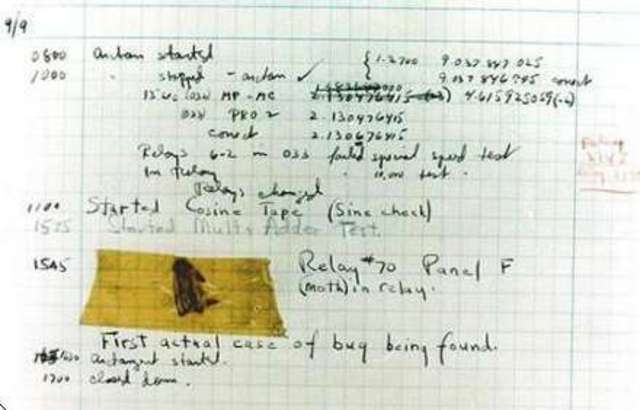 9/9
0800 antan started { 1.2700 9.037 847 025
1000 " stopped - antan ✓ 9.037 846 995 correct
13" uc (032) MP - MC 2.130476415 (-3) 4.615925059(-2)
(033) PRO 2 2.130476415
correct 2.130676415
Relays 6-2 in 033 failed special speed test
in relay " 10.000 test .
Relays changed
1100 Started Cosine Tape (Sine check)
1525 Started Mult+Adder Test.
1545 Relay #70 Panel F
(moth) in relay.
First actual case of bug being found.
antangent started.
1700 closed down.